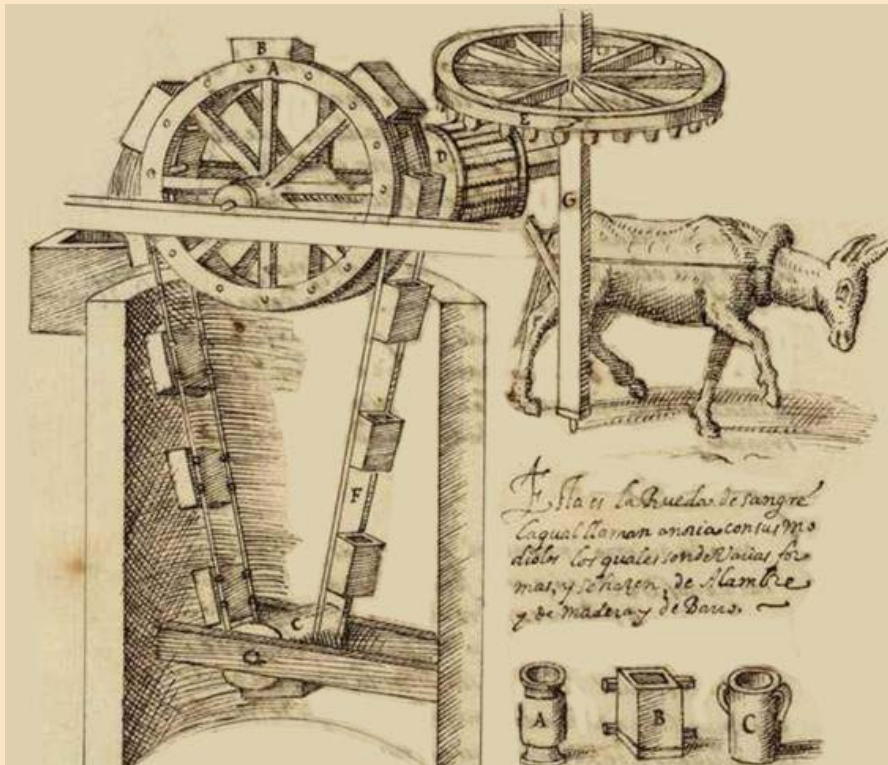 B
A
E
D
G
F
C
G
Esta es la Rueda de sangre
laqual llaman anoria consus mo
diolos los quales son de Varias for
mas, y se hazen, de Alambre
y de madera y de Barro.
A
B
C